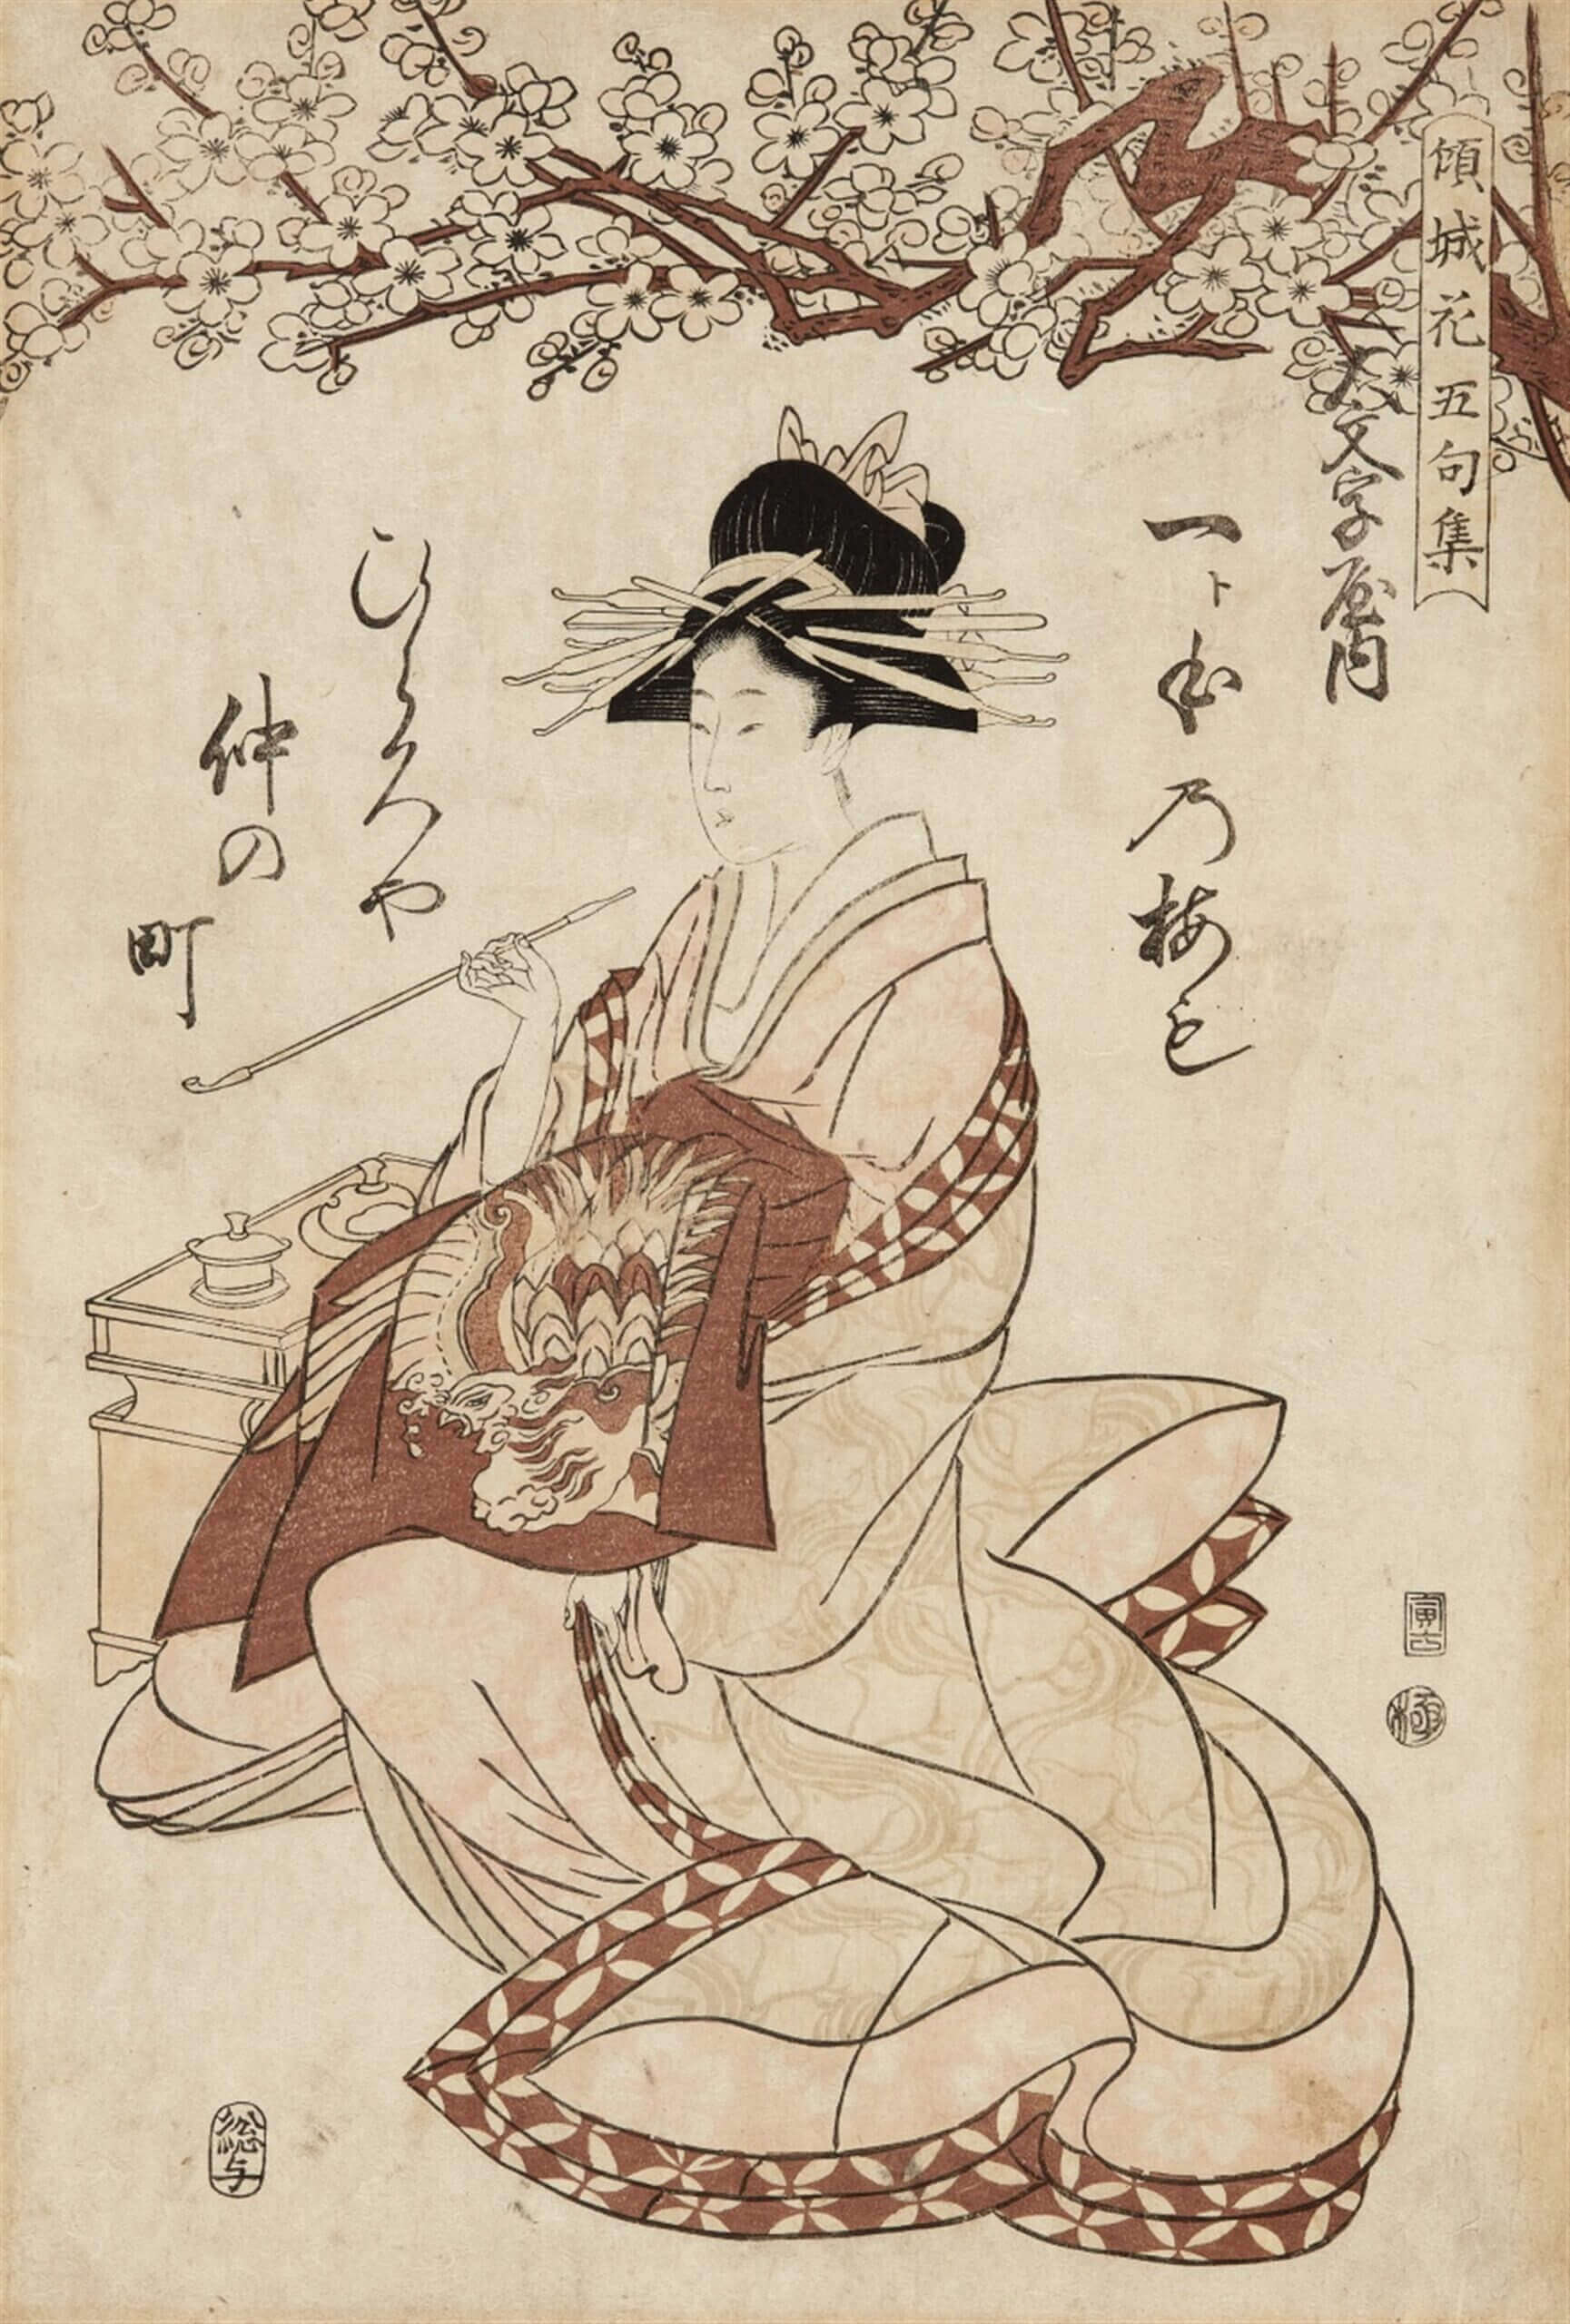 傾城花五句集
大文字屋内
一ト本乃梅も
ひらくや
仲の
町
極
総与